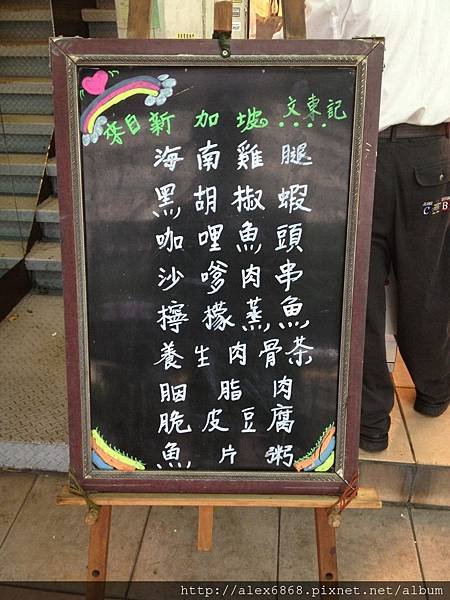 來自新加坡.....文東記
海南雞腿
黑胡椒蝦
咖哩魚頭
沙嗲肉串
檸檬蒸魚
養生肉骨茶
胭脂肉
脆皮豆腐
魚片粥
http://alex6868.pixnet.net/album